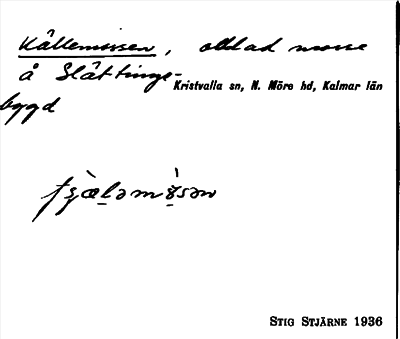 Källemossen, odlad mosse
å Slättinge-
bygd
Kristvalla sn, N. Möre hd, Kalmar län
STIG STJÄRNE 1936